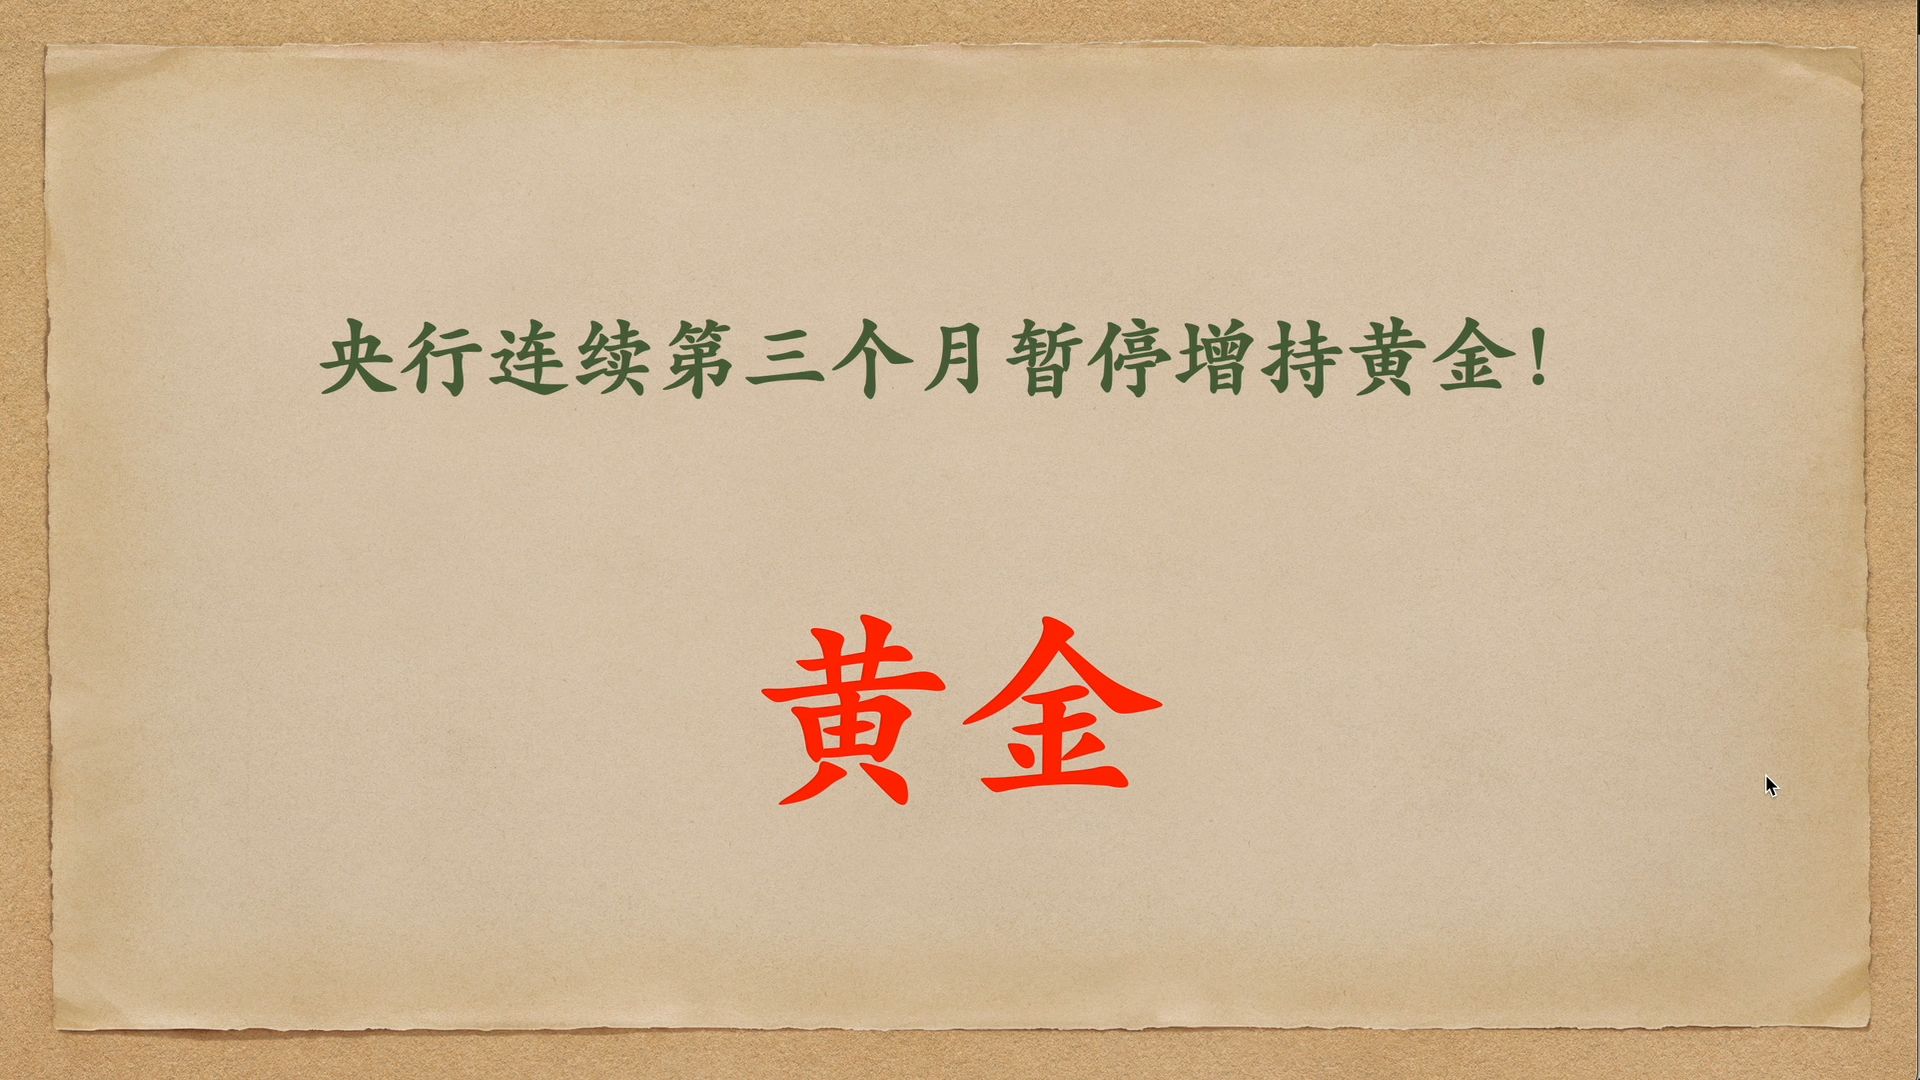 央行连续第三个月暂停增持黄金！
黄金